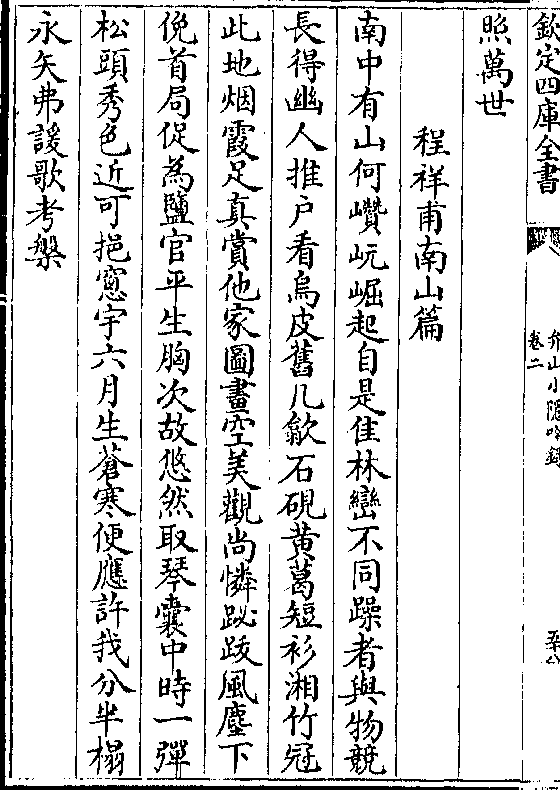 欽定四庫全書
卷二
照萬世
程祥甫南山篇
南中有山何巑岏崛起自是佳林巒不同躁者與物競
長得幽人推户看烏皮舊几歙石硯黄葛短衫湘竹冠
此地烟霞足真賞他家圖畫空美觀尚憐跛跋風塵下
俛首局促為鹽官平生胸次故悠然取琴囊中時一彈
松頭秀色近可挹窻宇六月生蒼寒便應許我分半榻
永矢弗諼歌考槃